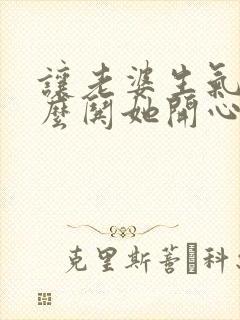 讓老婆生氣
麼鬨她開心
克里斯蒂 科